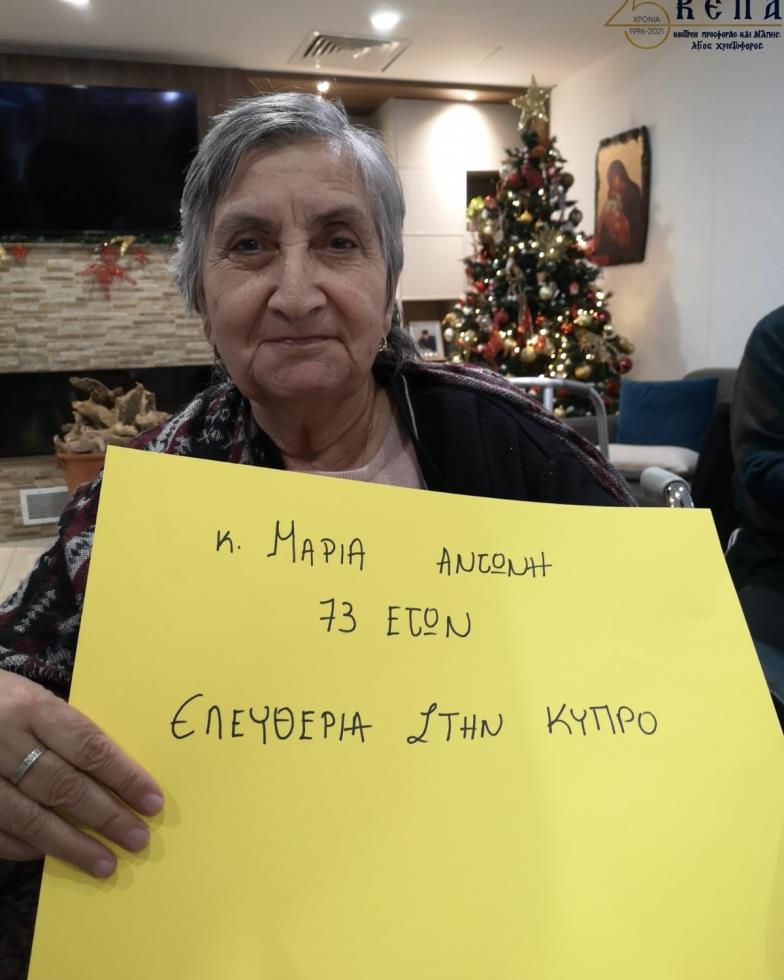 25
ΧΡΟΝΙΑ
1996-2021
ΚΕΠΑ
ΚΕΝΤΡΟΝ ΠΡΟΣΦΟΡΑΣ ΚΑΙ ΑΓΑΠΗΣ
ΑΓΙΟΣ ΧΡΙΣΤΟΦΟΡΟΣ
Κ. ΜΑΡΙΑ ΑΝΤΩΝΗ
73 ΕΤΩΝ
ΕΛΕΥΘΕΡΙΑ ΣΤΗΝ ΚΥΠΡΟ